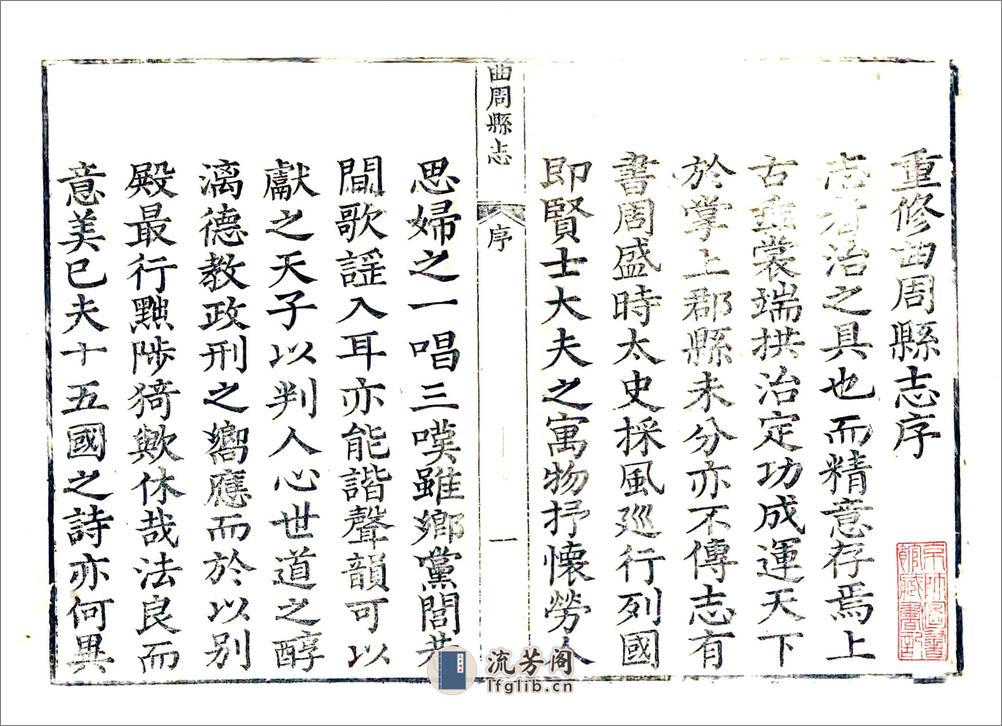 重修曲周縣志序
志者治之具也而精意存焉上
古垂裳端拱治定功成運天下
於掌上郡縣未分亦不傳志有
書周盛時太史採風廵行列國
即賢士大夫之寓物抒懷勞人
曲周縣志
序
一
思婦之一唱三嘆雖鄉黨閭巷
間歌謡入耳亦能諧聲韻可以
獻之天子以判人心世道之醇
漓德教政刑之嚮應而於以别
殿最行黜陟猗歟休哉法良而
意美已夫十五國之詩亦何異
京師圖書
館藏書記
流芳阁
lfglib.cn